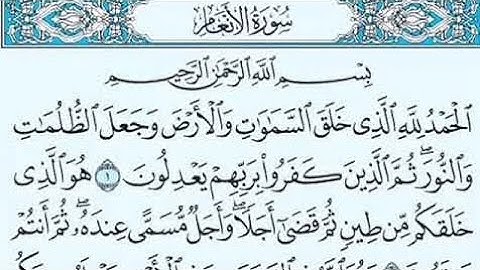 سُورَةُ الأَنْعَامِ
بِسْمِ اللَّهِ الرَّحْمَٰنِ الرَّحِيمِ
ٱلْحَمْدُ لِلَّهِ ٱلَّذِى خَلَقَ ٱلسَّمَٰوَٰتِ وَٱلْأَرْضَ وَجَعَلَ ٱلظُّلُمَٰتِ
وَٱلنُّورَ ۖ ثُمَّ ٱلَّذِينَ كَفَرُوا۟ بِرَبِّهِمْ يَعْدِلُونَ ١ هُوَ ٱلَّذِى
خَلَقَكُم مِّن طِينٍ ثُمَّ قَضَىٰٓ أَجَلًا ۖ وَأَجَلٌ مُّسَمًّى عِندَهُۥ ۖ ثُمَّ أَنتُمْ